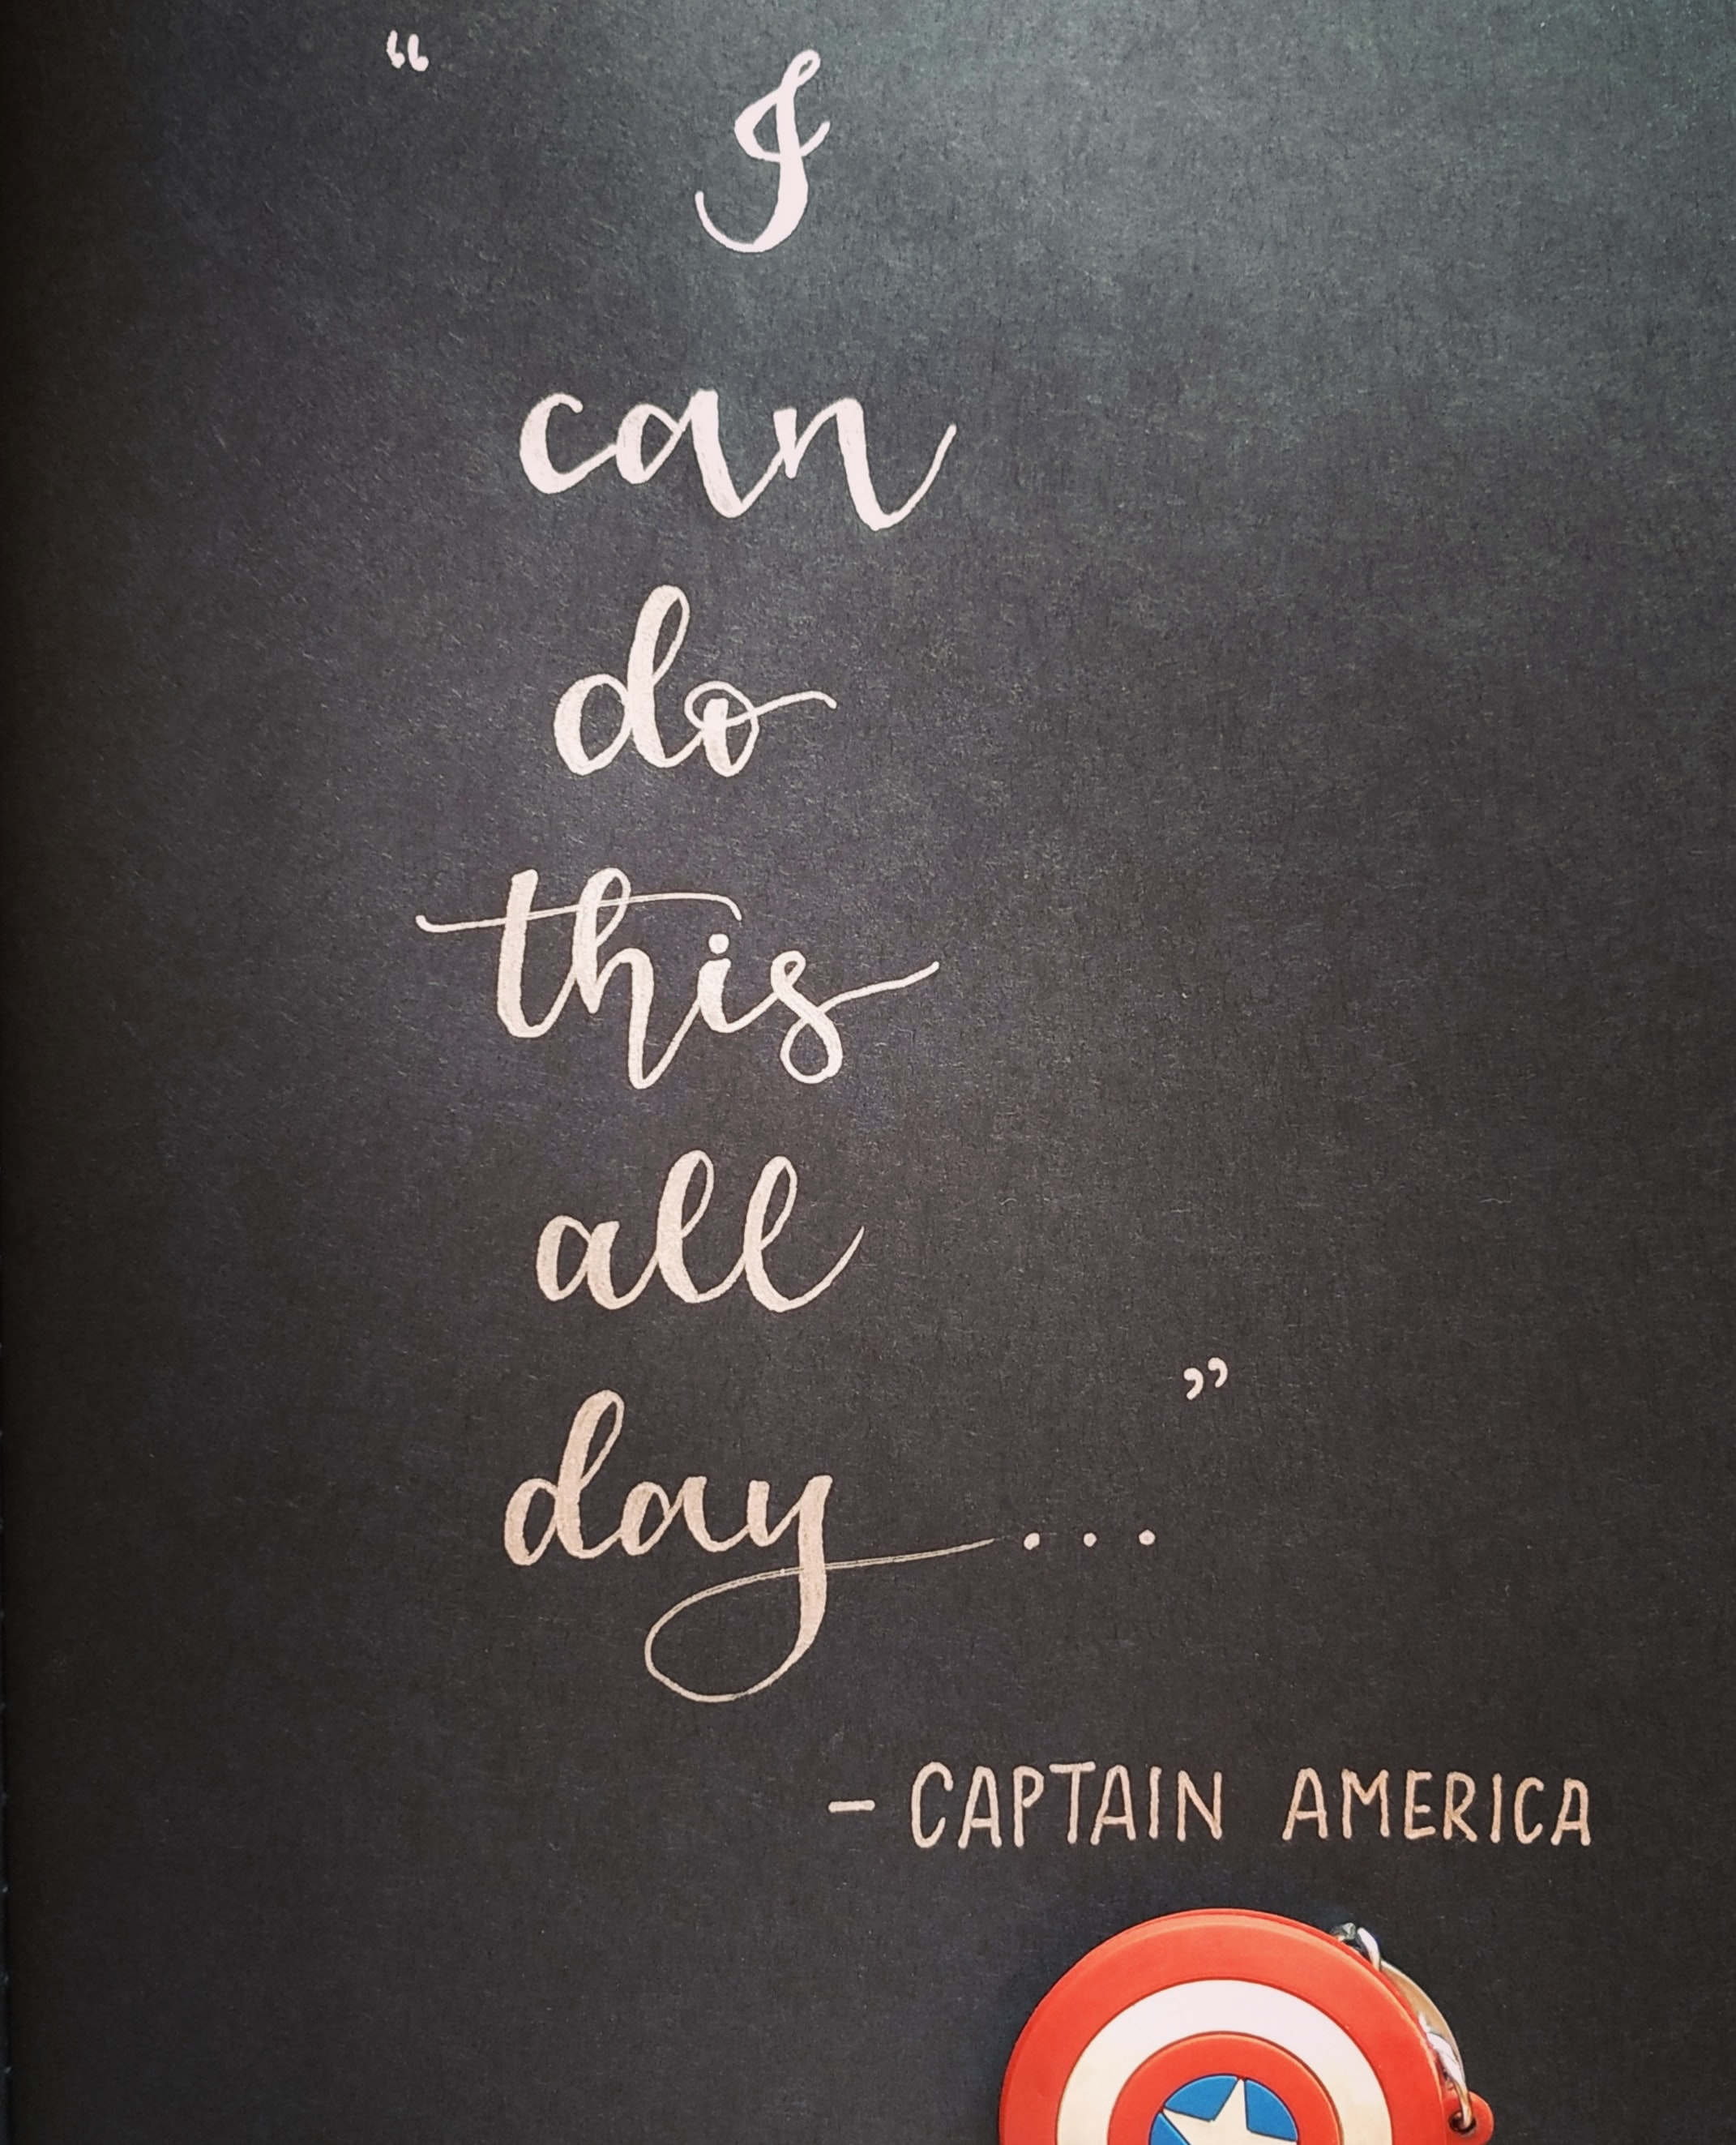 “ I
can
do
this
all
day... ”
- CAPTAIN AMERICA